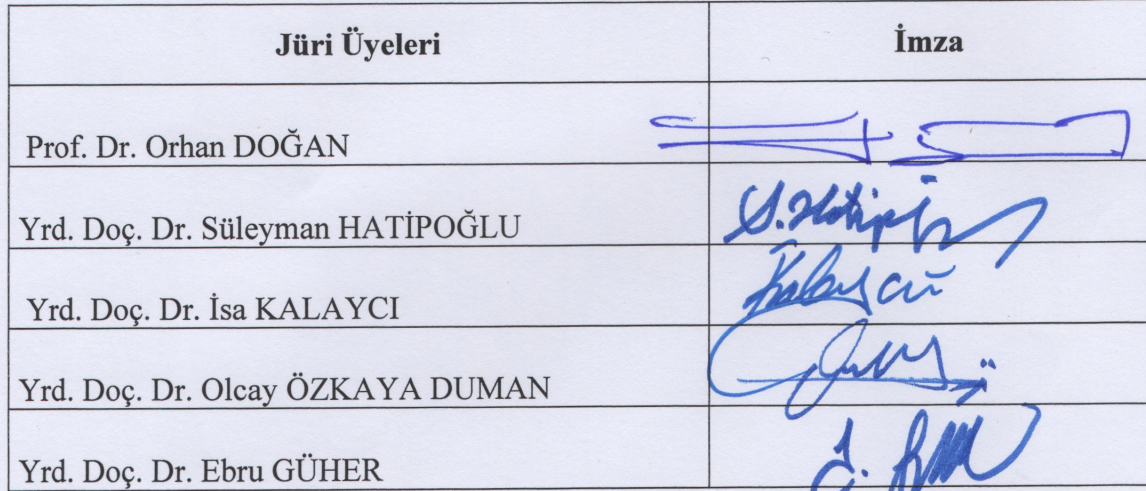 Jüri Üyeleri İmza
Prof. Dr. Orhan DOĞAN
Yrd. Doç. Dr. Süleyman HATİPOĞLU
Yrd. Doç. Dr. İsa KALAYCI
Yrd. Doç. Dr. Olcay ÖZKAYA DUMAN
Yrd. Doç. Dr. Ebru GÜHER